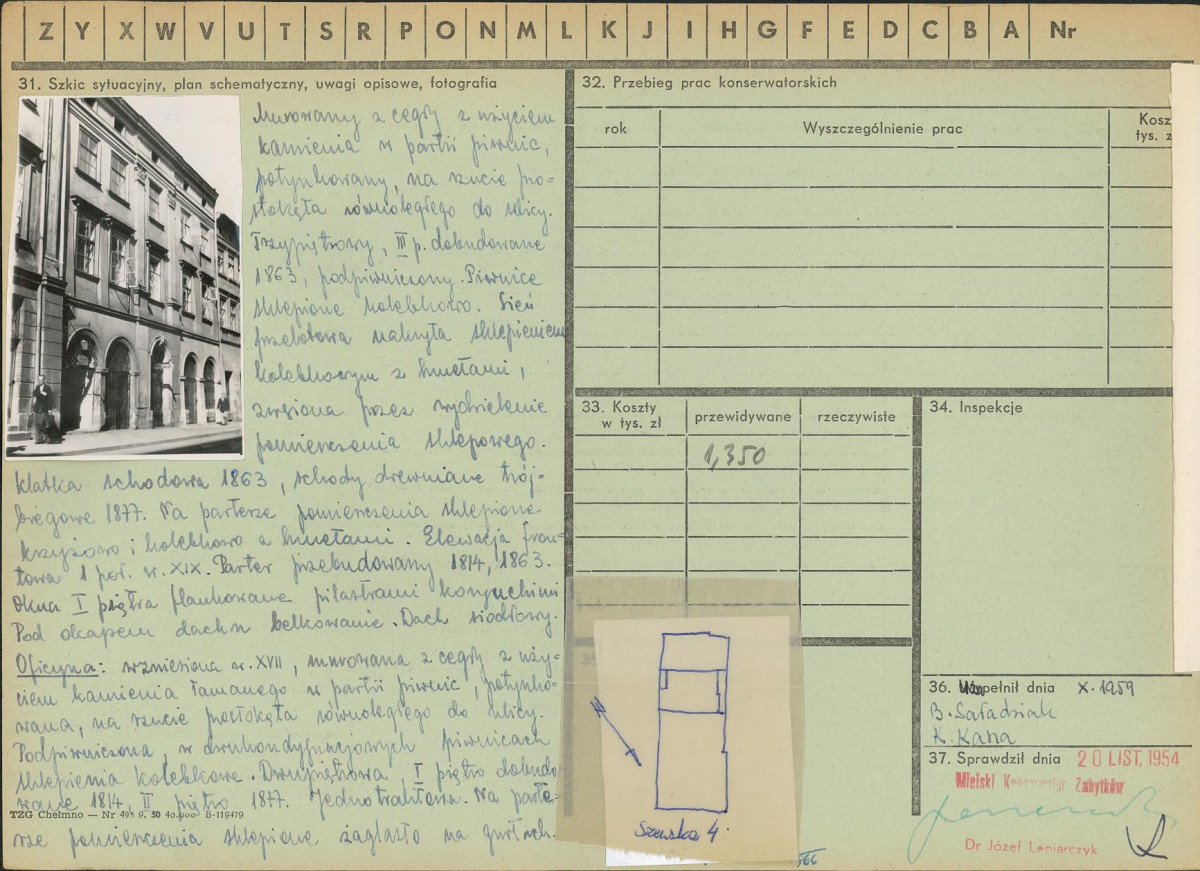 Z Y X W V U T S R P O N M L K J I H G F E D C B A Nr
31. Szkic sytuacyjny, plan schematyczny, uwagi opisowe, fotografia
Murowany z cegły z użyciem
kamienia w partii piwnic,
potynkowany, na rzucie pro-
stokąta równoległego do ulicy.
Trzypiętrowy, III p. dobudowane
1863, podpiwniczony. Piwnice
sklepione kolebkowo. Sień
przelotowa nakryta sklepieniem
kolebkowym z lunetami,
zwężona przez wydzielenie
pomieszczenia sklepowego.
Klatka schodowa 1863, schody drewniane trój-
biegowe 1877. Na parterze pomieszczenia sklepione
krzyżowo i kolebkowo z lunetami. Elewacja fron-
towa 1 poł. w. XIX. Parter przebudowany 1814, 1863.
Okna I piętra flankowane pilastrami
Pod okapem dachu belkowanie. Dach siodłowy.
Oficyna: wzniesiona w. XVII, murowana z cegły z uży-
ciem kamienia łamanego w partii piwnic, potynko-
wana, na rzucie prostokąta równoległego do ulicy.
Podpiwniczona, w dwukondygnacjowych piwnicach
sklepienia kolebkowe. Dwupiętrowa, I piętro dobudo-
wane 1814, II piętro 1877. Jednotraktowa. Na parte-
TZG Chełmno — Nr B-119479
rze pomieszczenia sklepione żaglasto na gurtach.
32. Przebieg prac konserwatorskich
rok Wyszczególnienie prac Kosz
tys. z
33. Koszty
w tys. zł przewidywane rzeczywiste
1,350
34. Inspekcje
35
Szewska 4
36. Wypełnił dnia X. 1959
B.
K. Kasia
37. Sprawdził dnia 20 LIST. 1954
Miejski Konserwator Zabytków
Dr Józef Leniarczyk